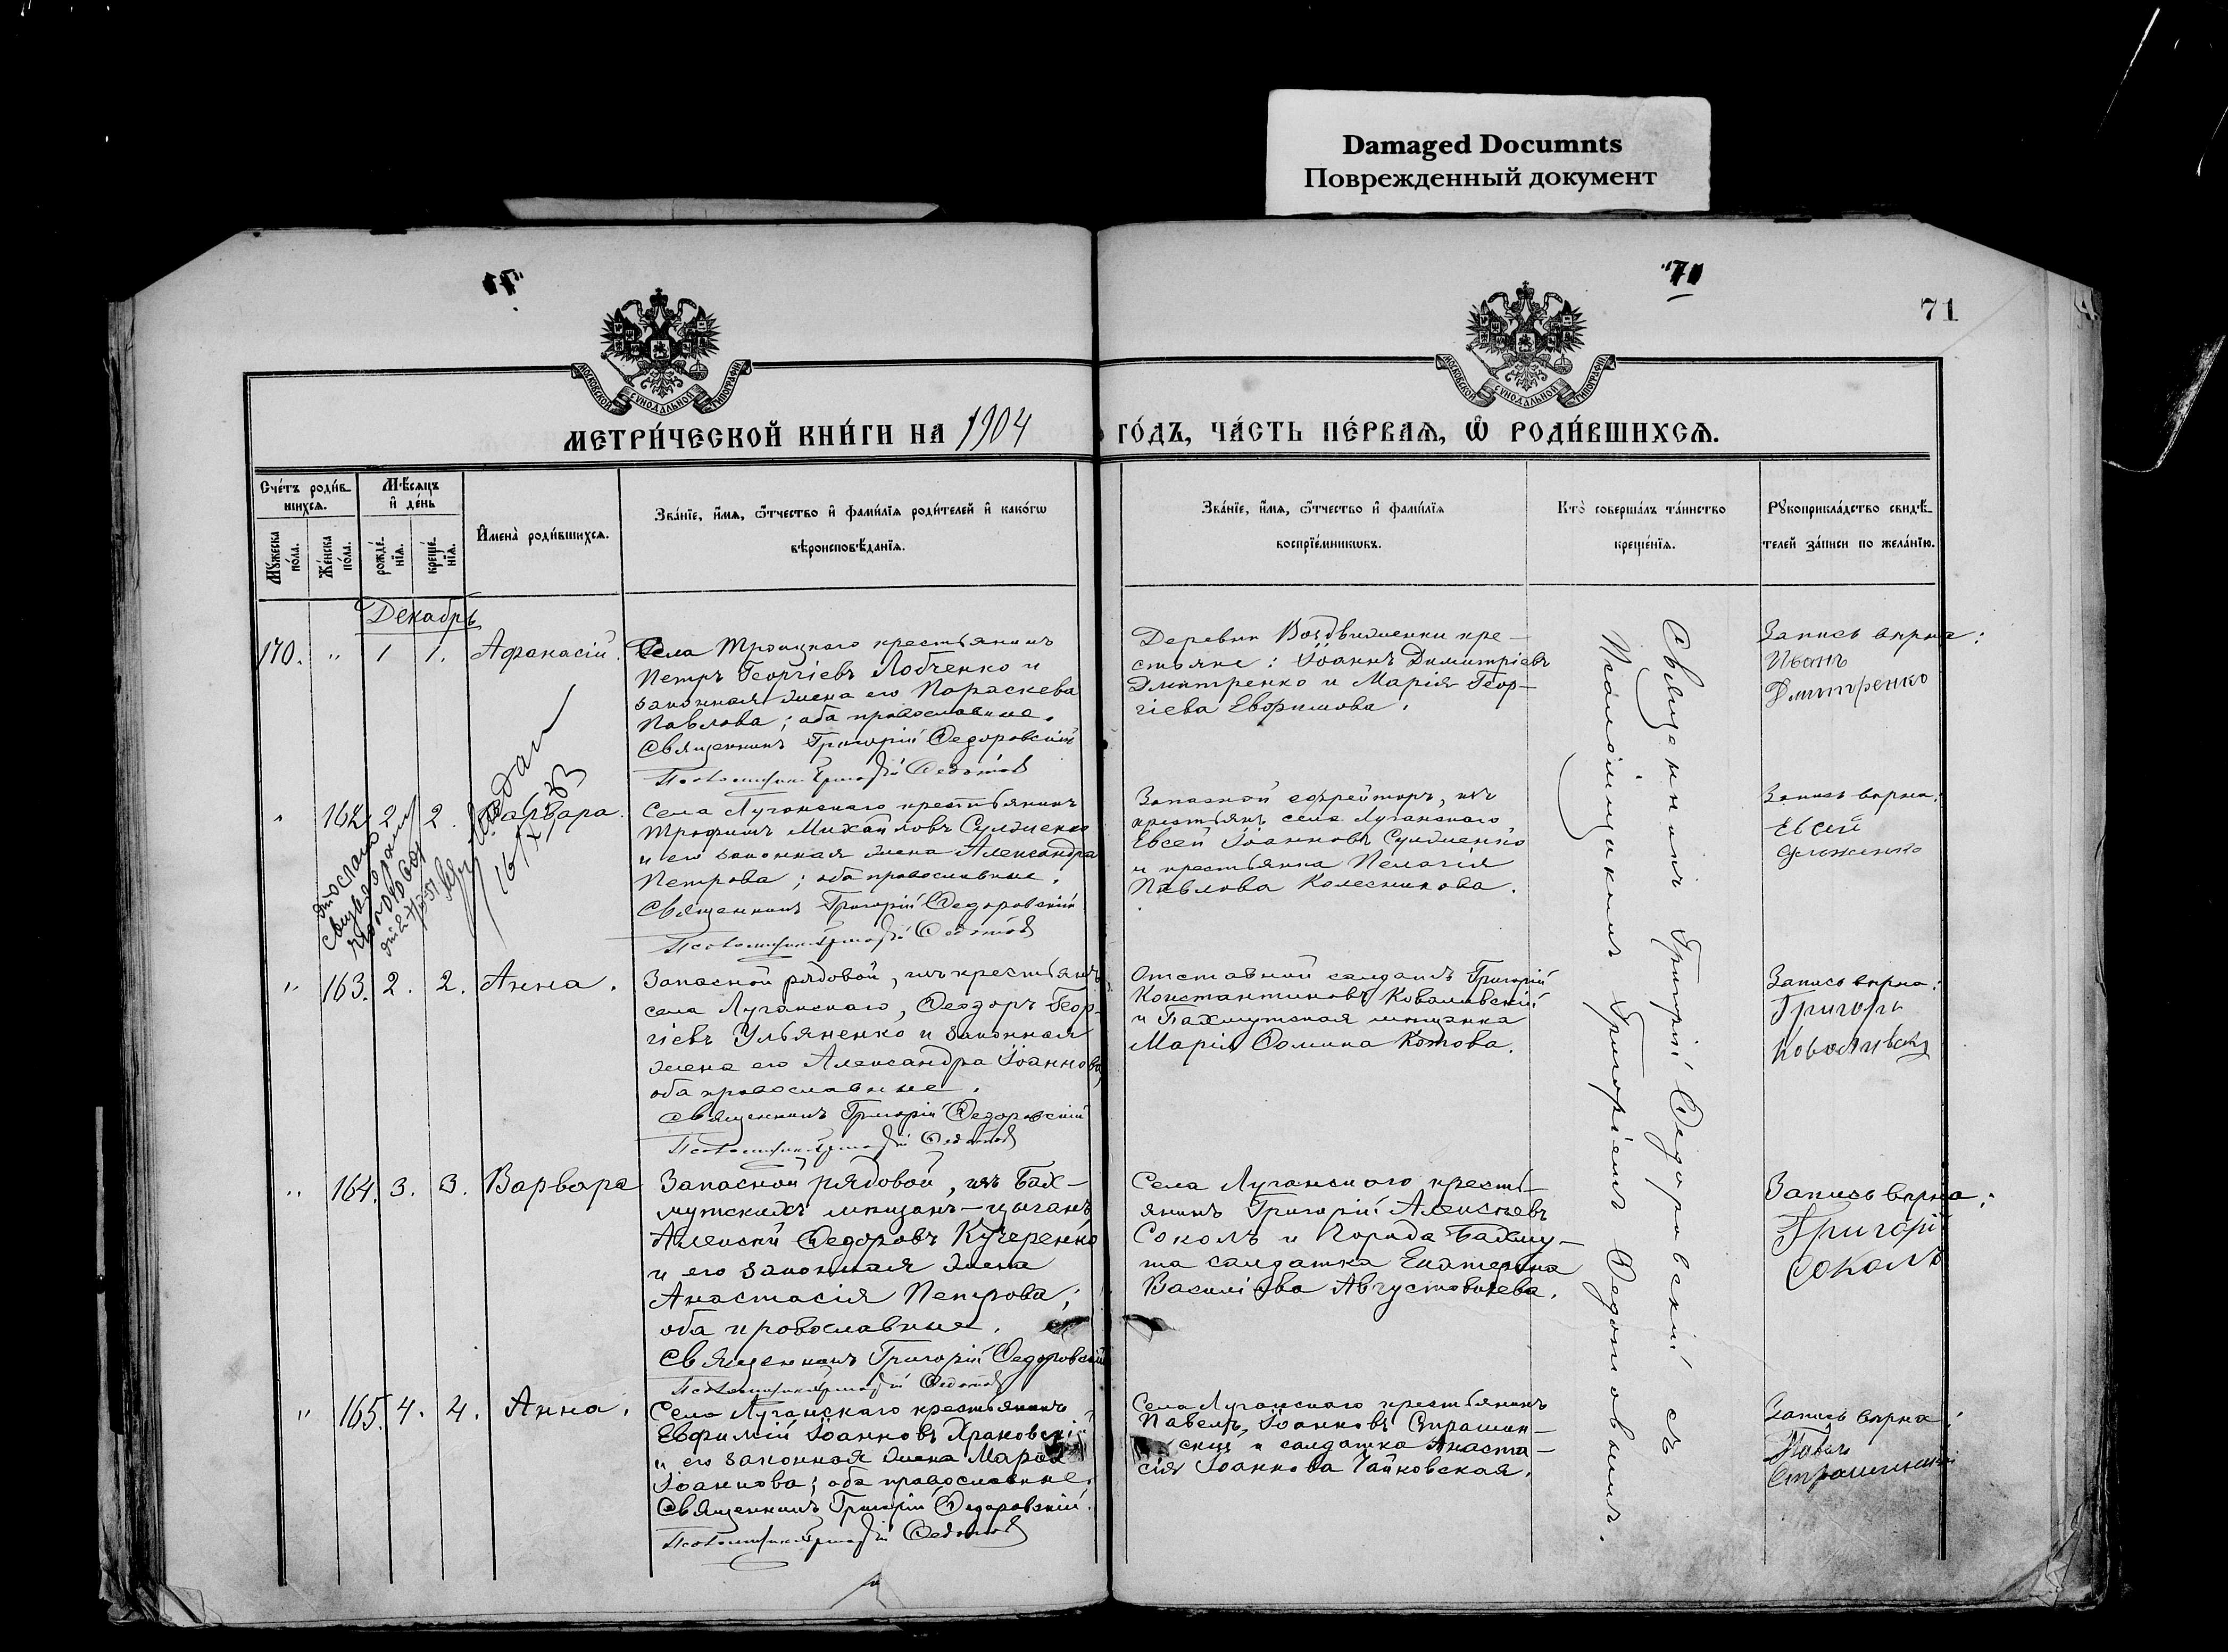 Damaged Documnts
Поврежденный документ
71
71
МОСКОВСКОЙ СУНОДАЛЬНОЙ ТИПОГРАФІИ
МОСКОВСКОЙ СУНОДАЛЬНОЙ ТИПОГРАФІИ
МЕТРИ́ЧЕСКОЙ КНИ́ГИ НА 1904
ГО́ДЪ, ЧА́СТЬ ПЕ́РВАѦ, Ѡ҆ РОДИ́ВШИХСѦ.
Сче́тъ роди́в-
шихсѧ.
Мꙋ́жеска
по́ла.
Же́нска
по́ла.
Мѣ́сѧцъ
и҆ де́нь
рожде́-
нїѧ.
креще́-
нїѧ.
И҆мена̀ роди́вшихсѧ.
Зва́нїе, и҆́мѧ, ѻ҆́тчество и҆ фами́лїѧ роди́телей и҆ како́гѡ
вѣроисповѣ́данїѧ.
Зва́нїе, и҆́мѧ, ѻ҆́тчество и҆ фами́лїѧ
воспрїе́мникѡвъ.
Кто̀ соверша́лъ та́инство
креще́нїѧ.
Рꙋкоприкла́дство свидѣ́-
телей за́писи по жела́нїю.
Декабрь
170. " 1 1. Афанасій.
Села Троицкаго крестьянинъ
Петръ Георгіевъ Лобченко и
законная жена его Параскева
Павлова; оба православные.
Священникъ Григорій Федоровскій
Псаломщикъ Григорій Федотов
Деревни Воздвиженки кре-
стьяне: Іоаннъ Димитріевъ
Дмитренко и Марія Геор-
гіева Евфимова.
Запись вѣрна:
Иванъ
Дмитренко
" 162. 2. 2. Варвара.
16/X
Села Луганскаго крестьянинъ
Трофимъ Михайловъ Сулженко
и его законная жена Александра
Петрова; оба православные.
Священникъ Григорій Федоровскій
Псаломщикъ Григорій Федотов
Запасной ефрейторъ, изъ
крестьянъ села Луганскаго
Евсей Іоанновъ Сулженко
и крестьянка Пелагія
Павлова Колесникова.
Запись вѣрна:
Евсей
" 163. 2. 2. Анна.
Запасной рядовой, изъ крестьянъ
села Луганскаго, Феодоръ Геор-
гіевъ Ульяненко и законная
жена его Александра Іоаннова,
оба православные.
Священникъ Григорій Федоровскій
Псаломщикъ Григорій Федотов
Отставной солдатъ Григорій
Константиновъ Ковалевскій
и Бахмутская мѣщанка
Марія Фомина Котова.
Запись вѣрна:
Григорь
" 164. 3. 3. Варвара
Запасной рядовой, изъ Бах-
мутскихъ мѣщанъ-цыганъ
Алексѣй Федоровъ Кучеренко
и его законная жена
Анастасія Петрова;
оба православные.
Священникъ Григорій Федоровскій
Псаломщикъ Григорій Федотов
Села Луганскаго кресть-
янинъ Григорій Алексѣевъ
Соколъ и города Бахму-
та солдатка Екатерина
Василіева Августовичева.
Запись вѣрна:
Григорій
Соколъ
" 165. 4. 4. Анна.
Села Луганскаго крестьянинъ
Евфимій Іоанновъ Храновскій
и его законная жена Марія
Іоаннова; оба православные.
Священникъ Григорій Федоровскій.
Псаломщикъ Григорій Федотов
Села Луганскаго крестьянинъ
Павелъ Іоанновъ Страшин-
скій и солдатка Анаста-
сія Іоаннова Чайковская.
Запись вѣрна:
Павелъ
Священникъ Григорій Федоровскій съ
Псаломщикомъ Григоріемъ Федотовымъ.